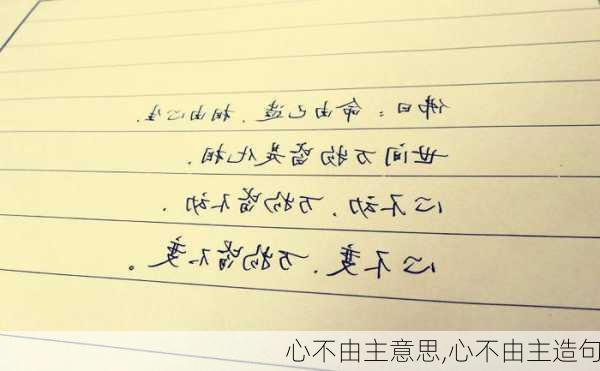 佛曰：命由己造、相由心生.
世间万物皆是化相.
心不动、万物皆不动.
心不变、万物皆不变。
心不由主意思,心不由主造句